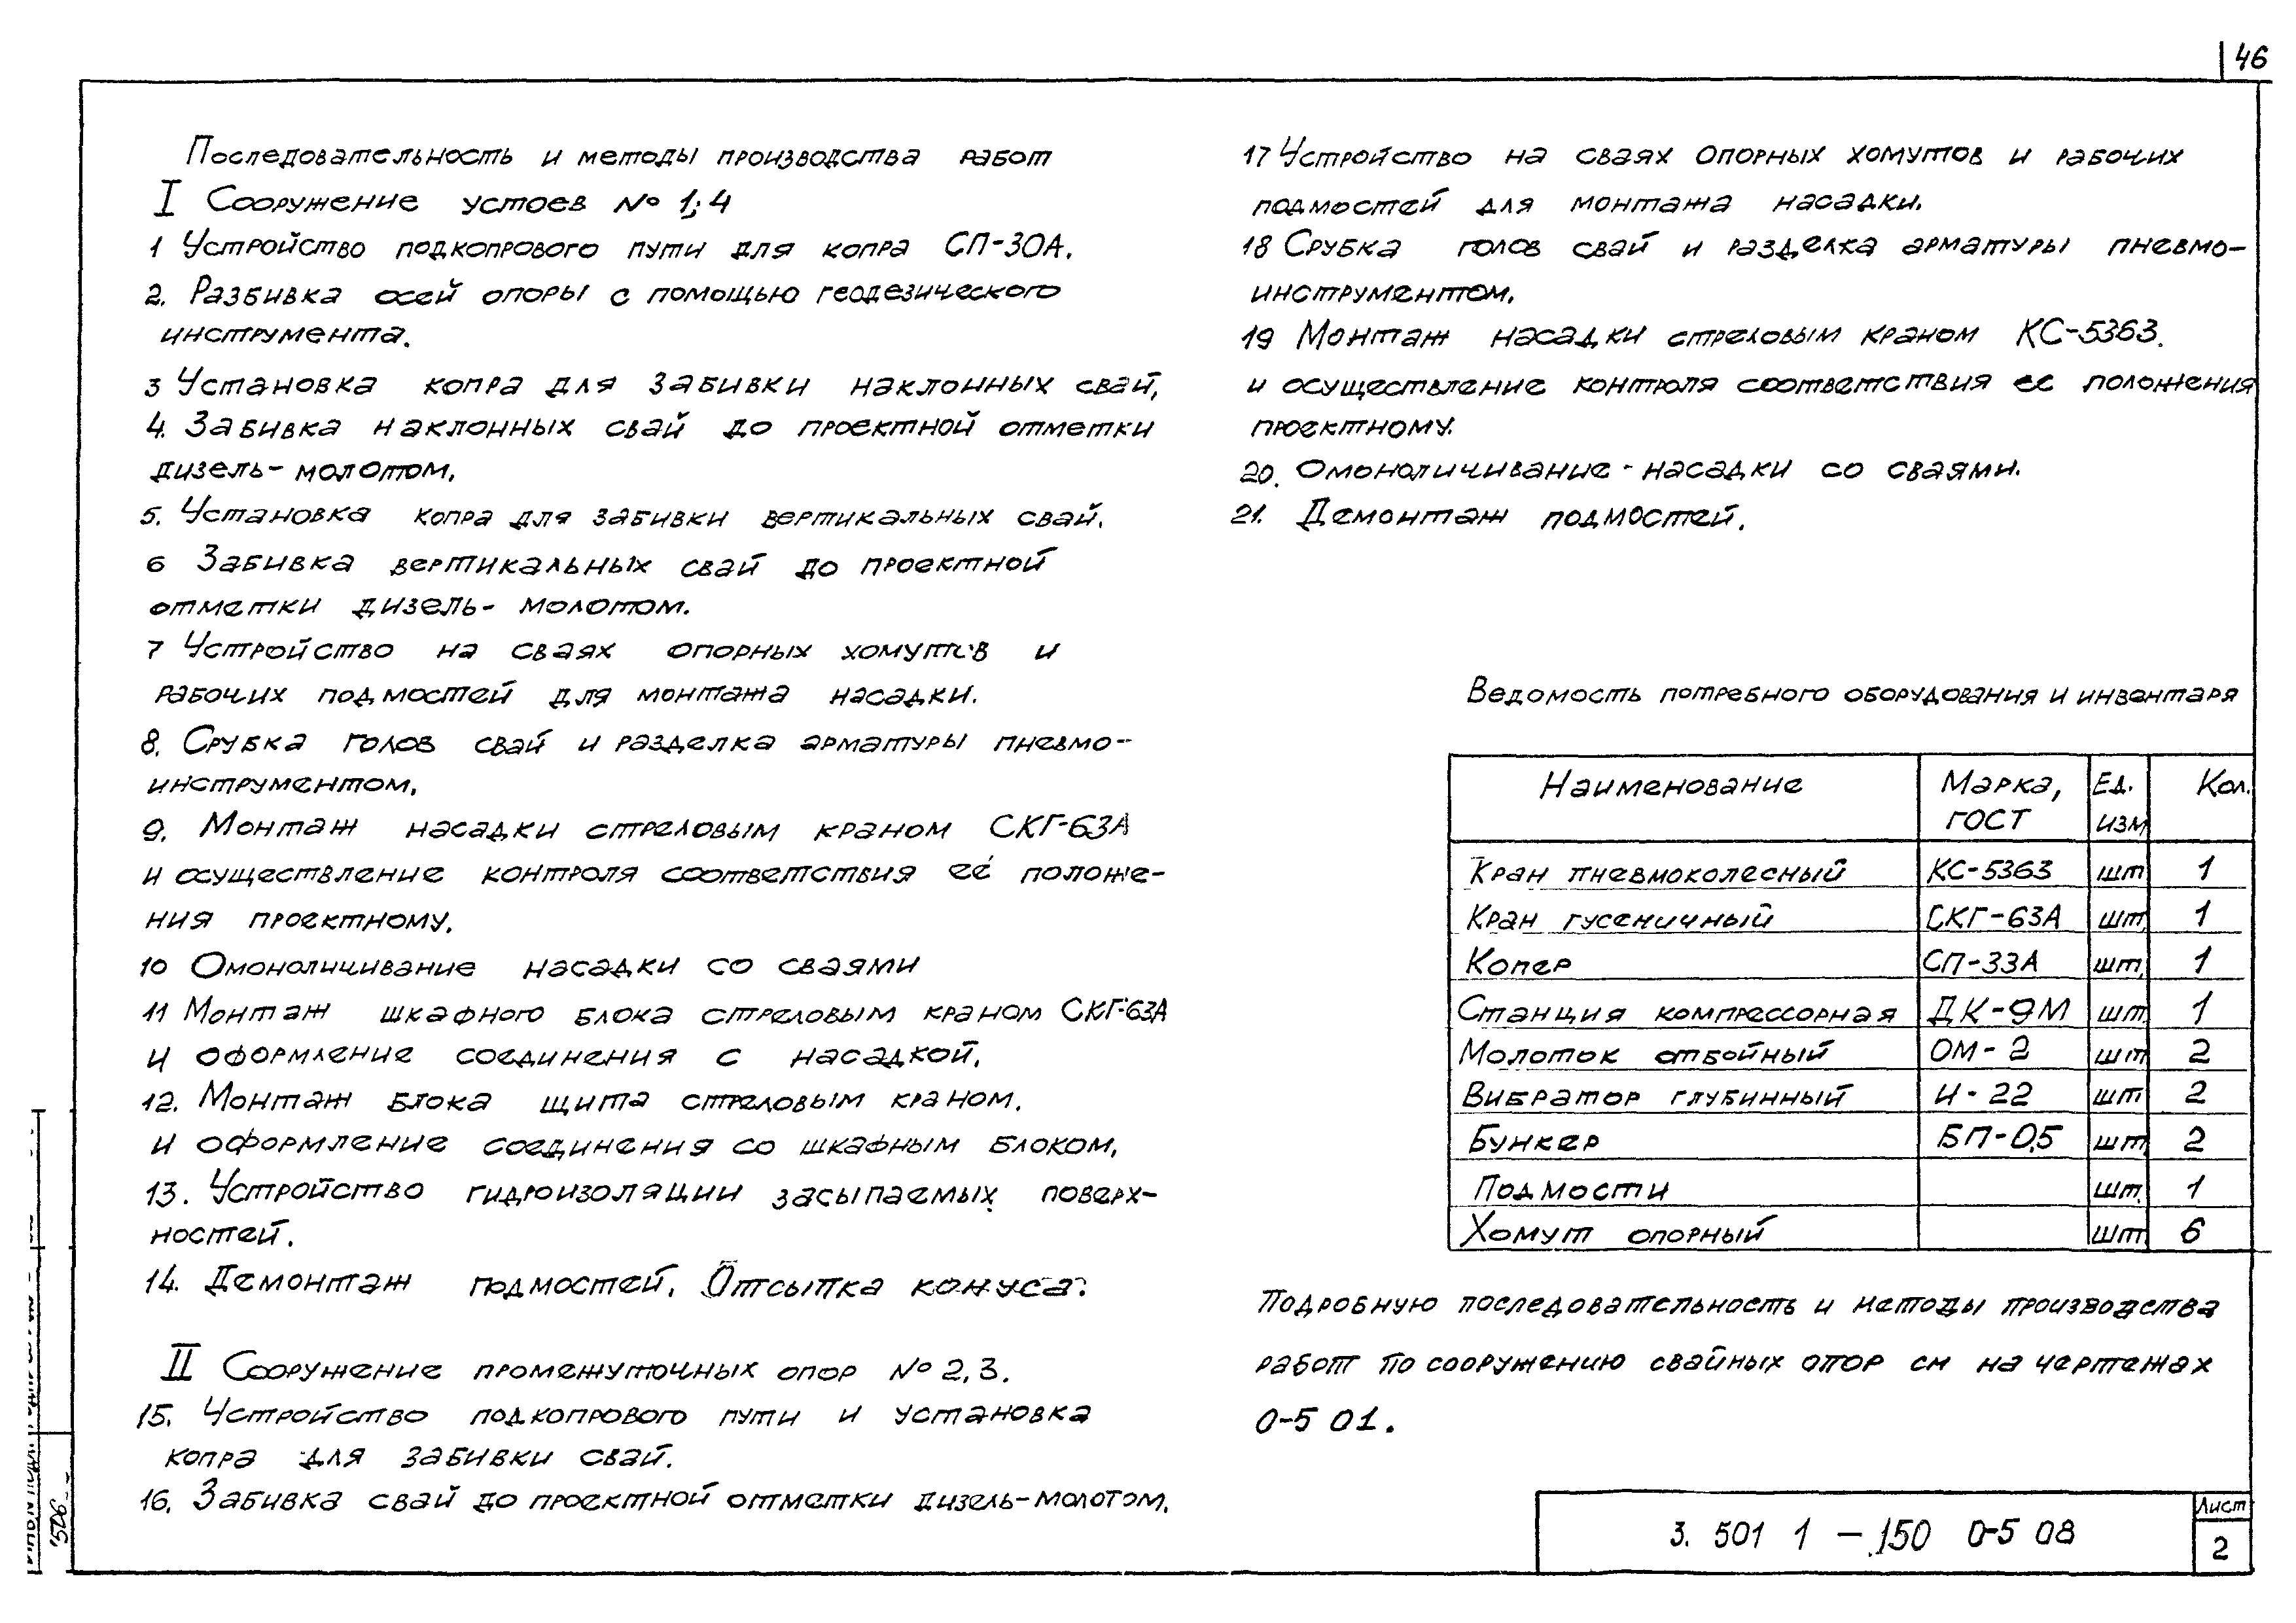 46
Последовательность и методы производства работ
I Сооружение устоев № 1; 4
1 Устройство подкопрового пути для копра СП-30А.
2. Разбивка осей опоры с помощью геодезического
инструмента.
3 Установка копра для забивки наклонных свай,
4. Забивка наклонных свай до проектной отметки
дизель-молотом.
5. Установка копра для забивки вертикальных свай.
6 Забивка вертикальных свай до проектной
отметки дизель-молотом.
7 Устройство на сваях опорных хомутов и
рабочих подмостей для монтажа насадки.
8. Срубка голов свай и разделка арматуры пневмо-
инструментом.
9. Монтаж насадки стреловым краном СКГ-63А
и осуществление контроля соответствия её положе-
ния проектному.
10 Омоноличивание насадки со сваями
11 Монтаж шкафного блока стреловым краном СКГ-63А
и оформление соединения с насадкой.
12. Монтаж блока щита стреловым краном.
и оформление соединения со шкафным блоком.
13. Устройство гидроизоляции засыпаемых поверх-
ностей.
14. Демонтаж подмостей. Отсыпка конуса.
II Сооружение промежуточных опор № 2, 3.
15. Устройство подкопрового пути и установка
копра для забивки свай.
16. Забивка свай до проектной отметки дизель-молотом.
17 Устройство на сваях опорных хомутов и рабочих
подмостей для монтажа насадки.
18 Срубка голов свай и разделка арматуры пневмо-
инструментом.
19 Монтаж насадки стреловым краном КС-5363.
и осуществление контроля соответствия ее положения
проектному.
20. Омоноличивание насадки со сваями.
21. Демонтаж подмостей.
Ведомость потребного оборудования и инвентаря
Наименование Марка, ГОСТ Ед. изм Кол.
Кран пневмоколесный КС-5363 шт 1
Кран гусеничный СКГ-63А шт. 1
Копер СП-33А шт. 1
Станция компрессорная ДК-9М шт. 1
Молоток отбойный ОМ-2 шт 2
Вибратор глубинный И-22 шт 2
Бункер БП-0,5 шт. 2
Подмости шт. 1
Хомут опорный шт 6
Подробную последовательность и методы производства
работ по сооружению свайных опор см на чертежах
0-5 01.
3. 501 1 - 150 0-5 08
Лист
2